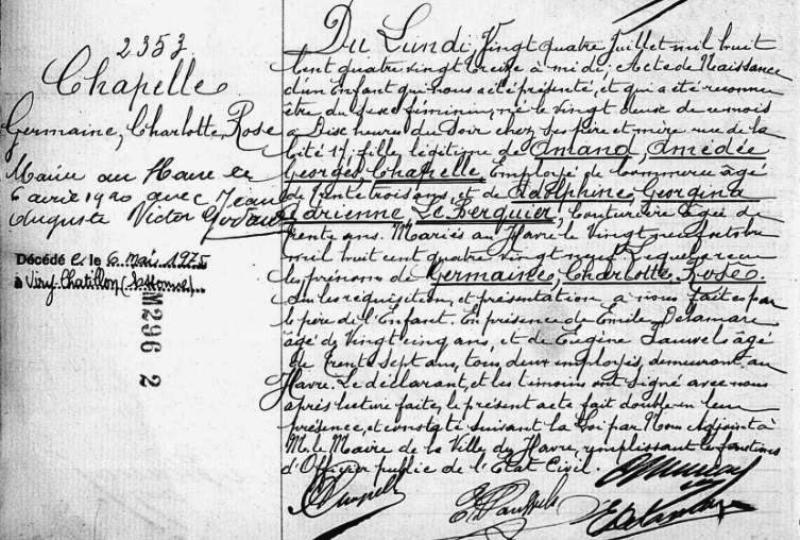 2353
Chapelle
Germaine, Charlotte, Rose
Mariée au Havre le
6 avril 1920 avec Jean
Auguste Victor
Décédé e le 6 Mars 1975
à Viry-Chatillon (Essonne)
M296 2
Du Lundi, Vingt quatre Juillet mil huit
Cent quatre vingt treize à midi, Acte de Naissance
d'un Enfant qui nous a été présenté, et qui a été reconnu
être du sexe féminin, né le vingt deux de ce mois
à Dix heures du Soir chez ses père et mère rue de la
Cité 17, fille légitime de Amand, Amédée
Georges, Chapelle, Employé de Commerce âgé
de trente trois ans, et de Adolphine, Georgina
Adrienne, Le Berquier, Couturière âgée de
trente ans. Mariés au Havre le Vingt neuf octobre
mil huit cent quatre vingt neuf. Lequel a reçu
les prénoms de Germaine, Charlotte, Rose.
Sur les réquisition, et présentation à nous faites par
le père de l'Enfant. En présence de Emile Delamare
âgé de Vingt cinq ans, et de Eugène Lauwels âgé
de trente sept ans, tous deux employés, demeurant au
Havre. Le déclarant, et les témoins ont signé avec nous
après lecture faite, le présent acte fait double en leur
présence, et constaté suivant la Loi par Nous Adjoint à
M. le Maire de la Ville du Havre, remplissant les fonctions
d'Officier public de l'Etat Civil.
Chapelle
E. Delamare